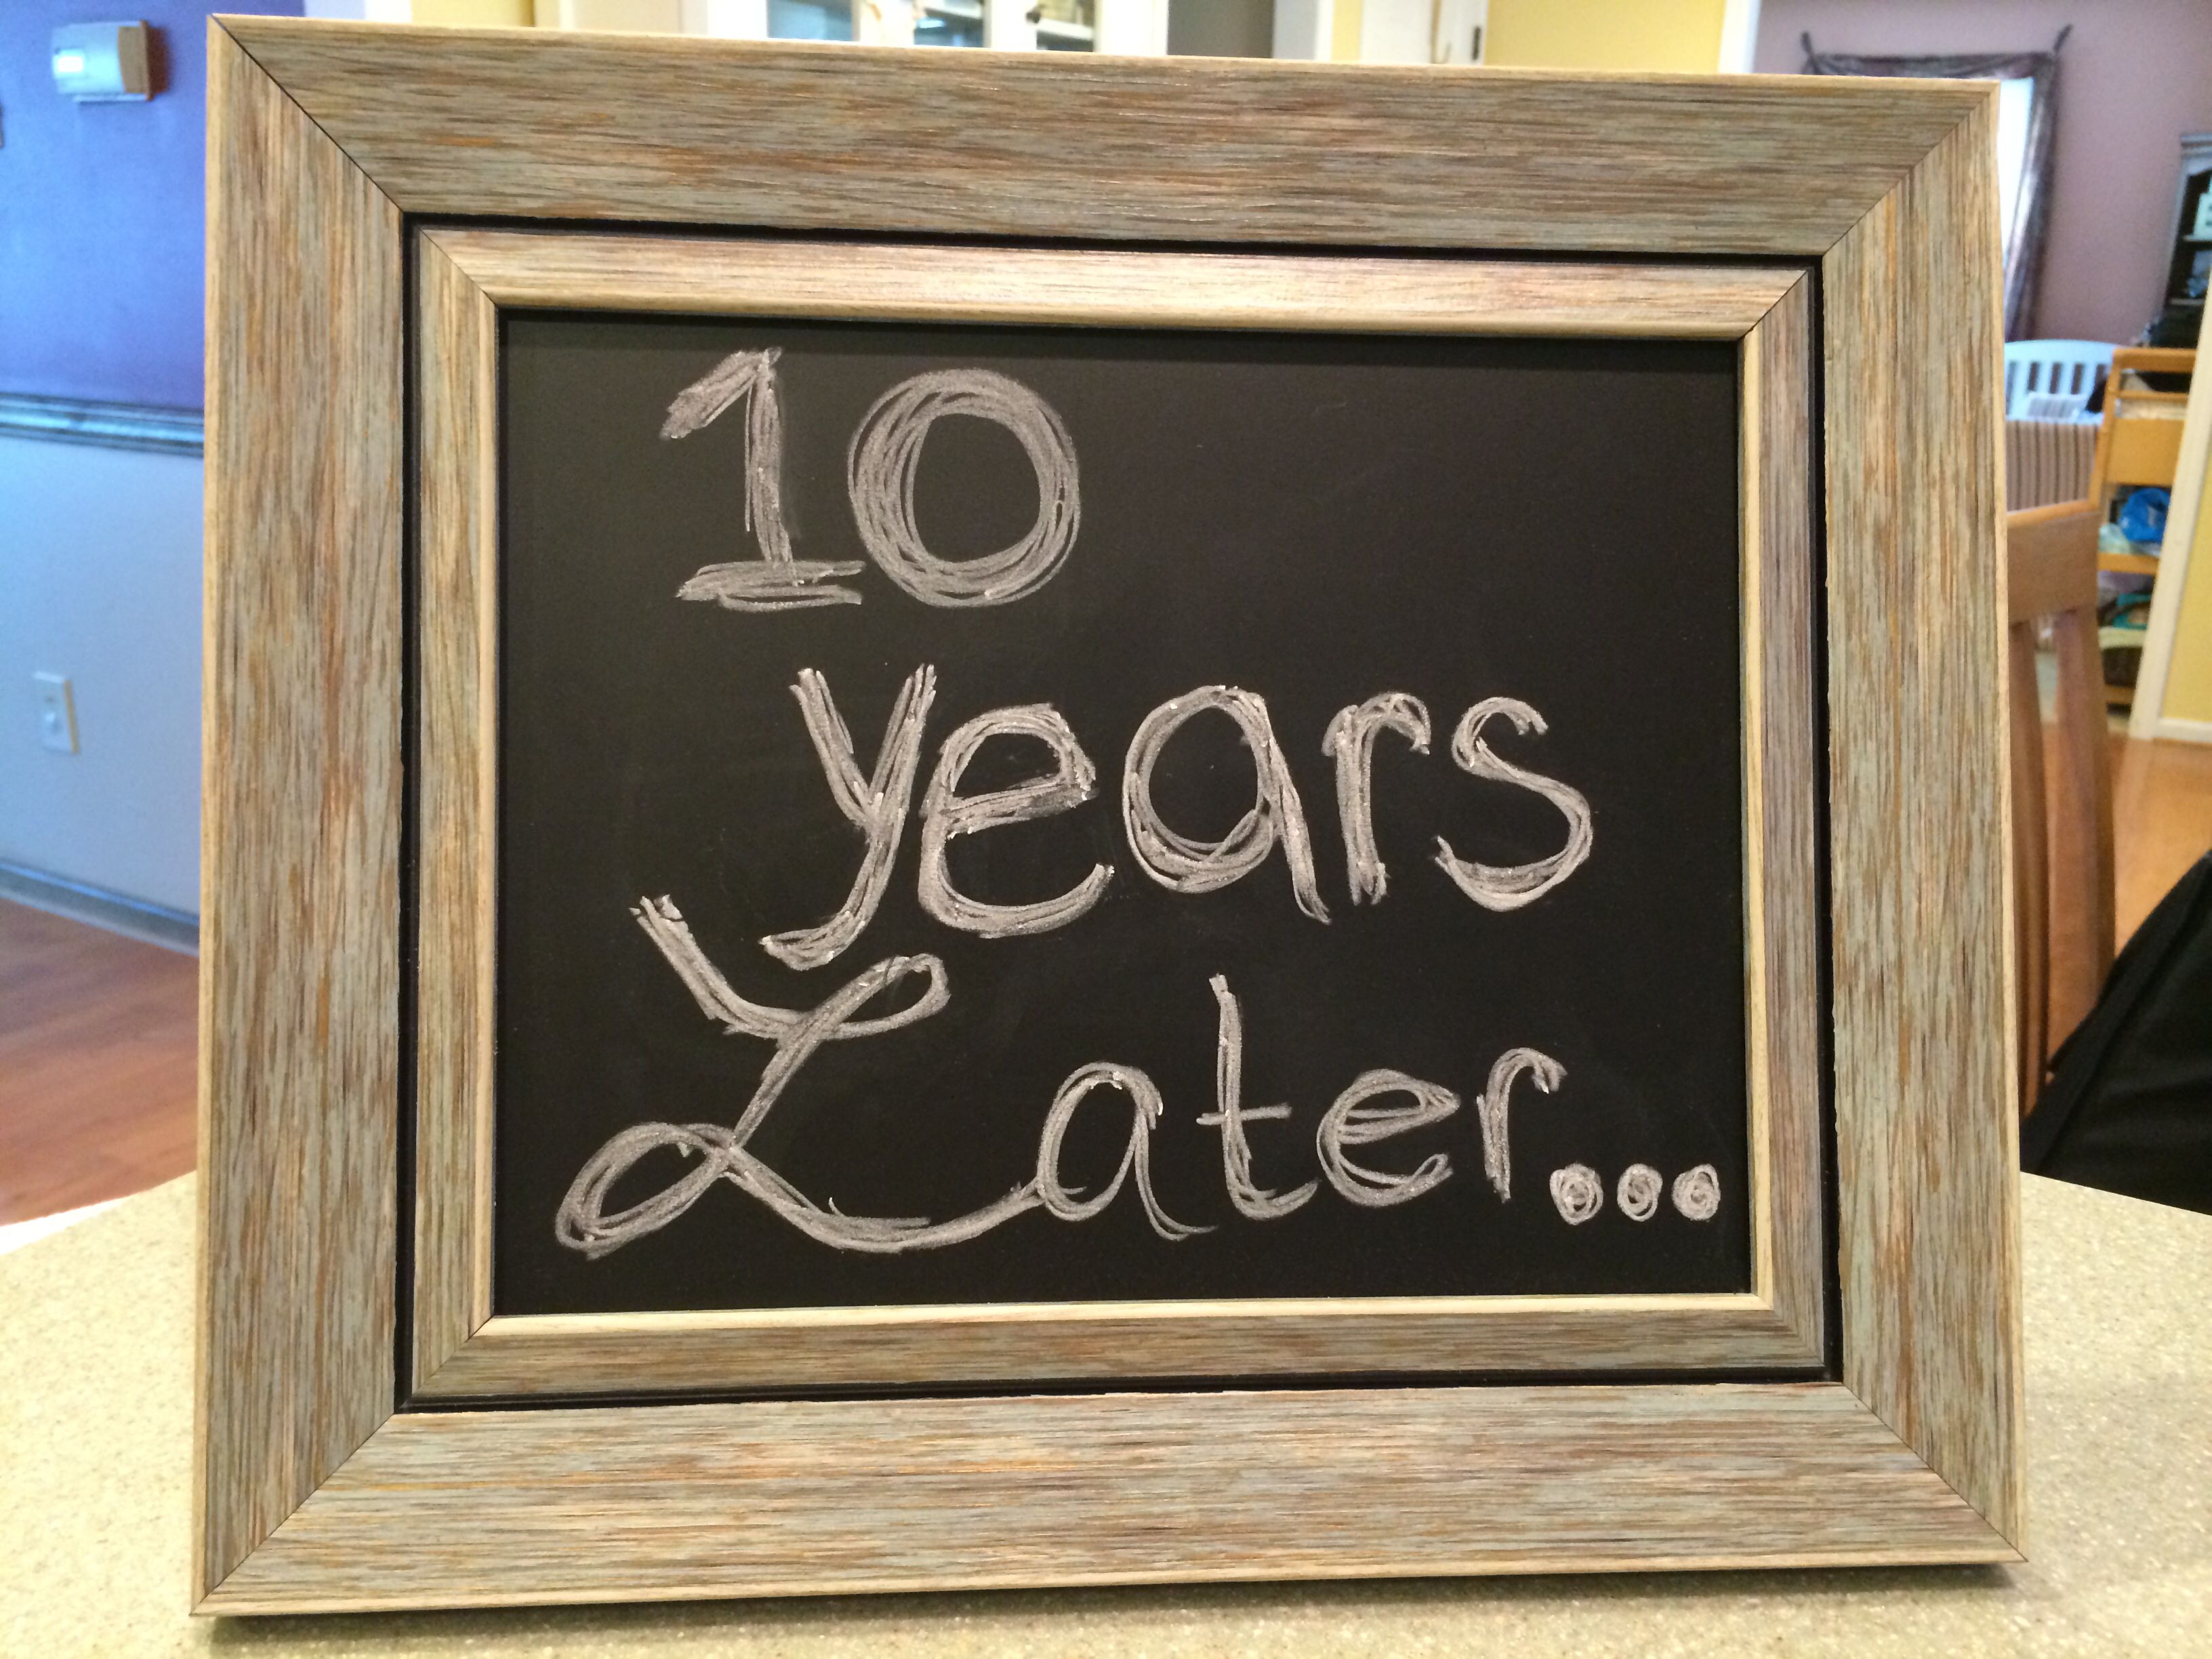 10
years
Later...